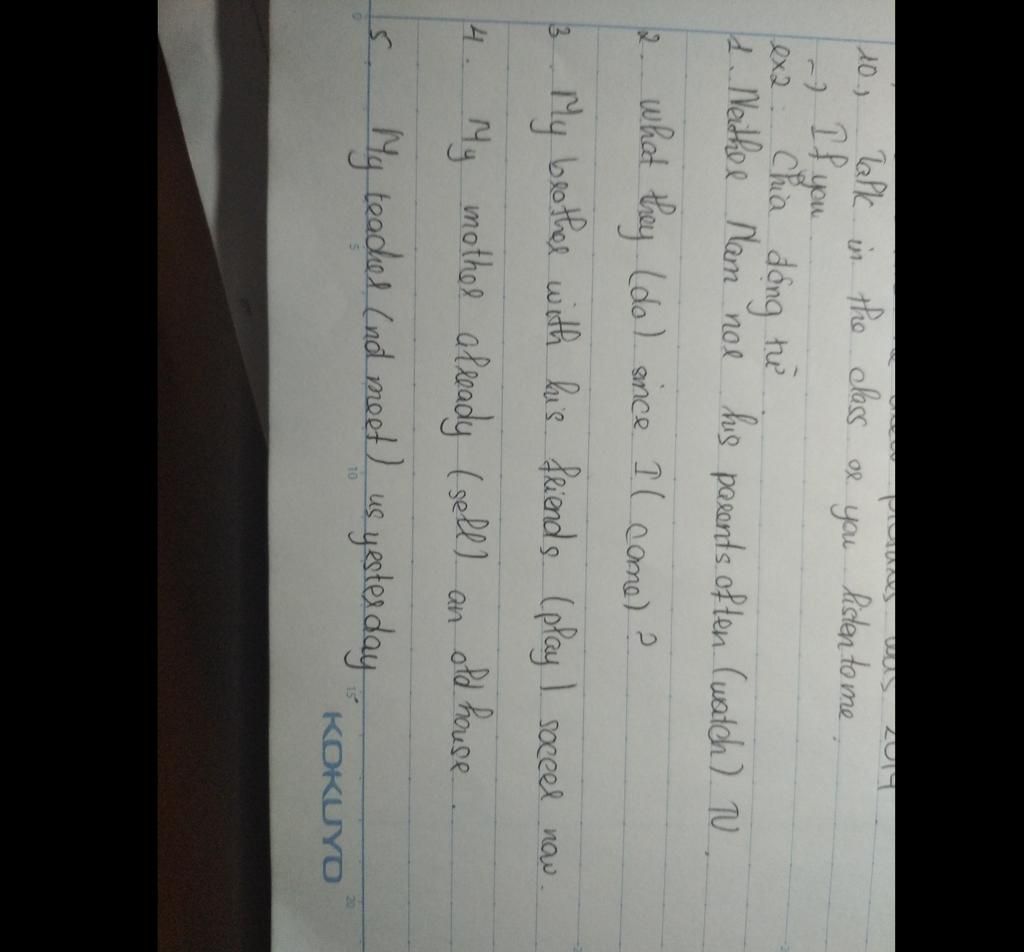 2019
10., Talk in the class or you listen to me.
-) If you
ex2: Chia động từ
1. Neither Nam nor his parents often (watch) TV.
2. what they (do) since I ( come) ?
3. My brother with his friends (play) soccer now.
4. My mother already (sell) an old house.
5. My teacher (not meet) us yesterday
0 5 10 15 20
KOKUYO